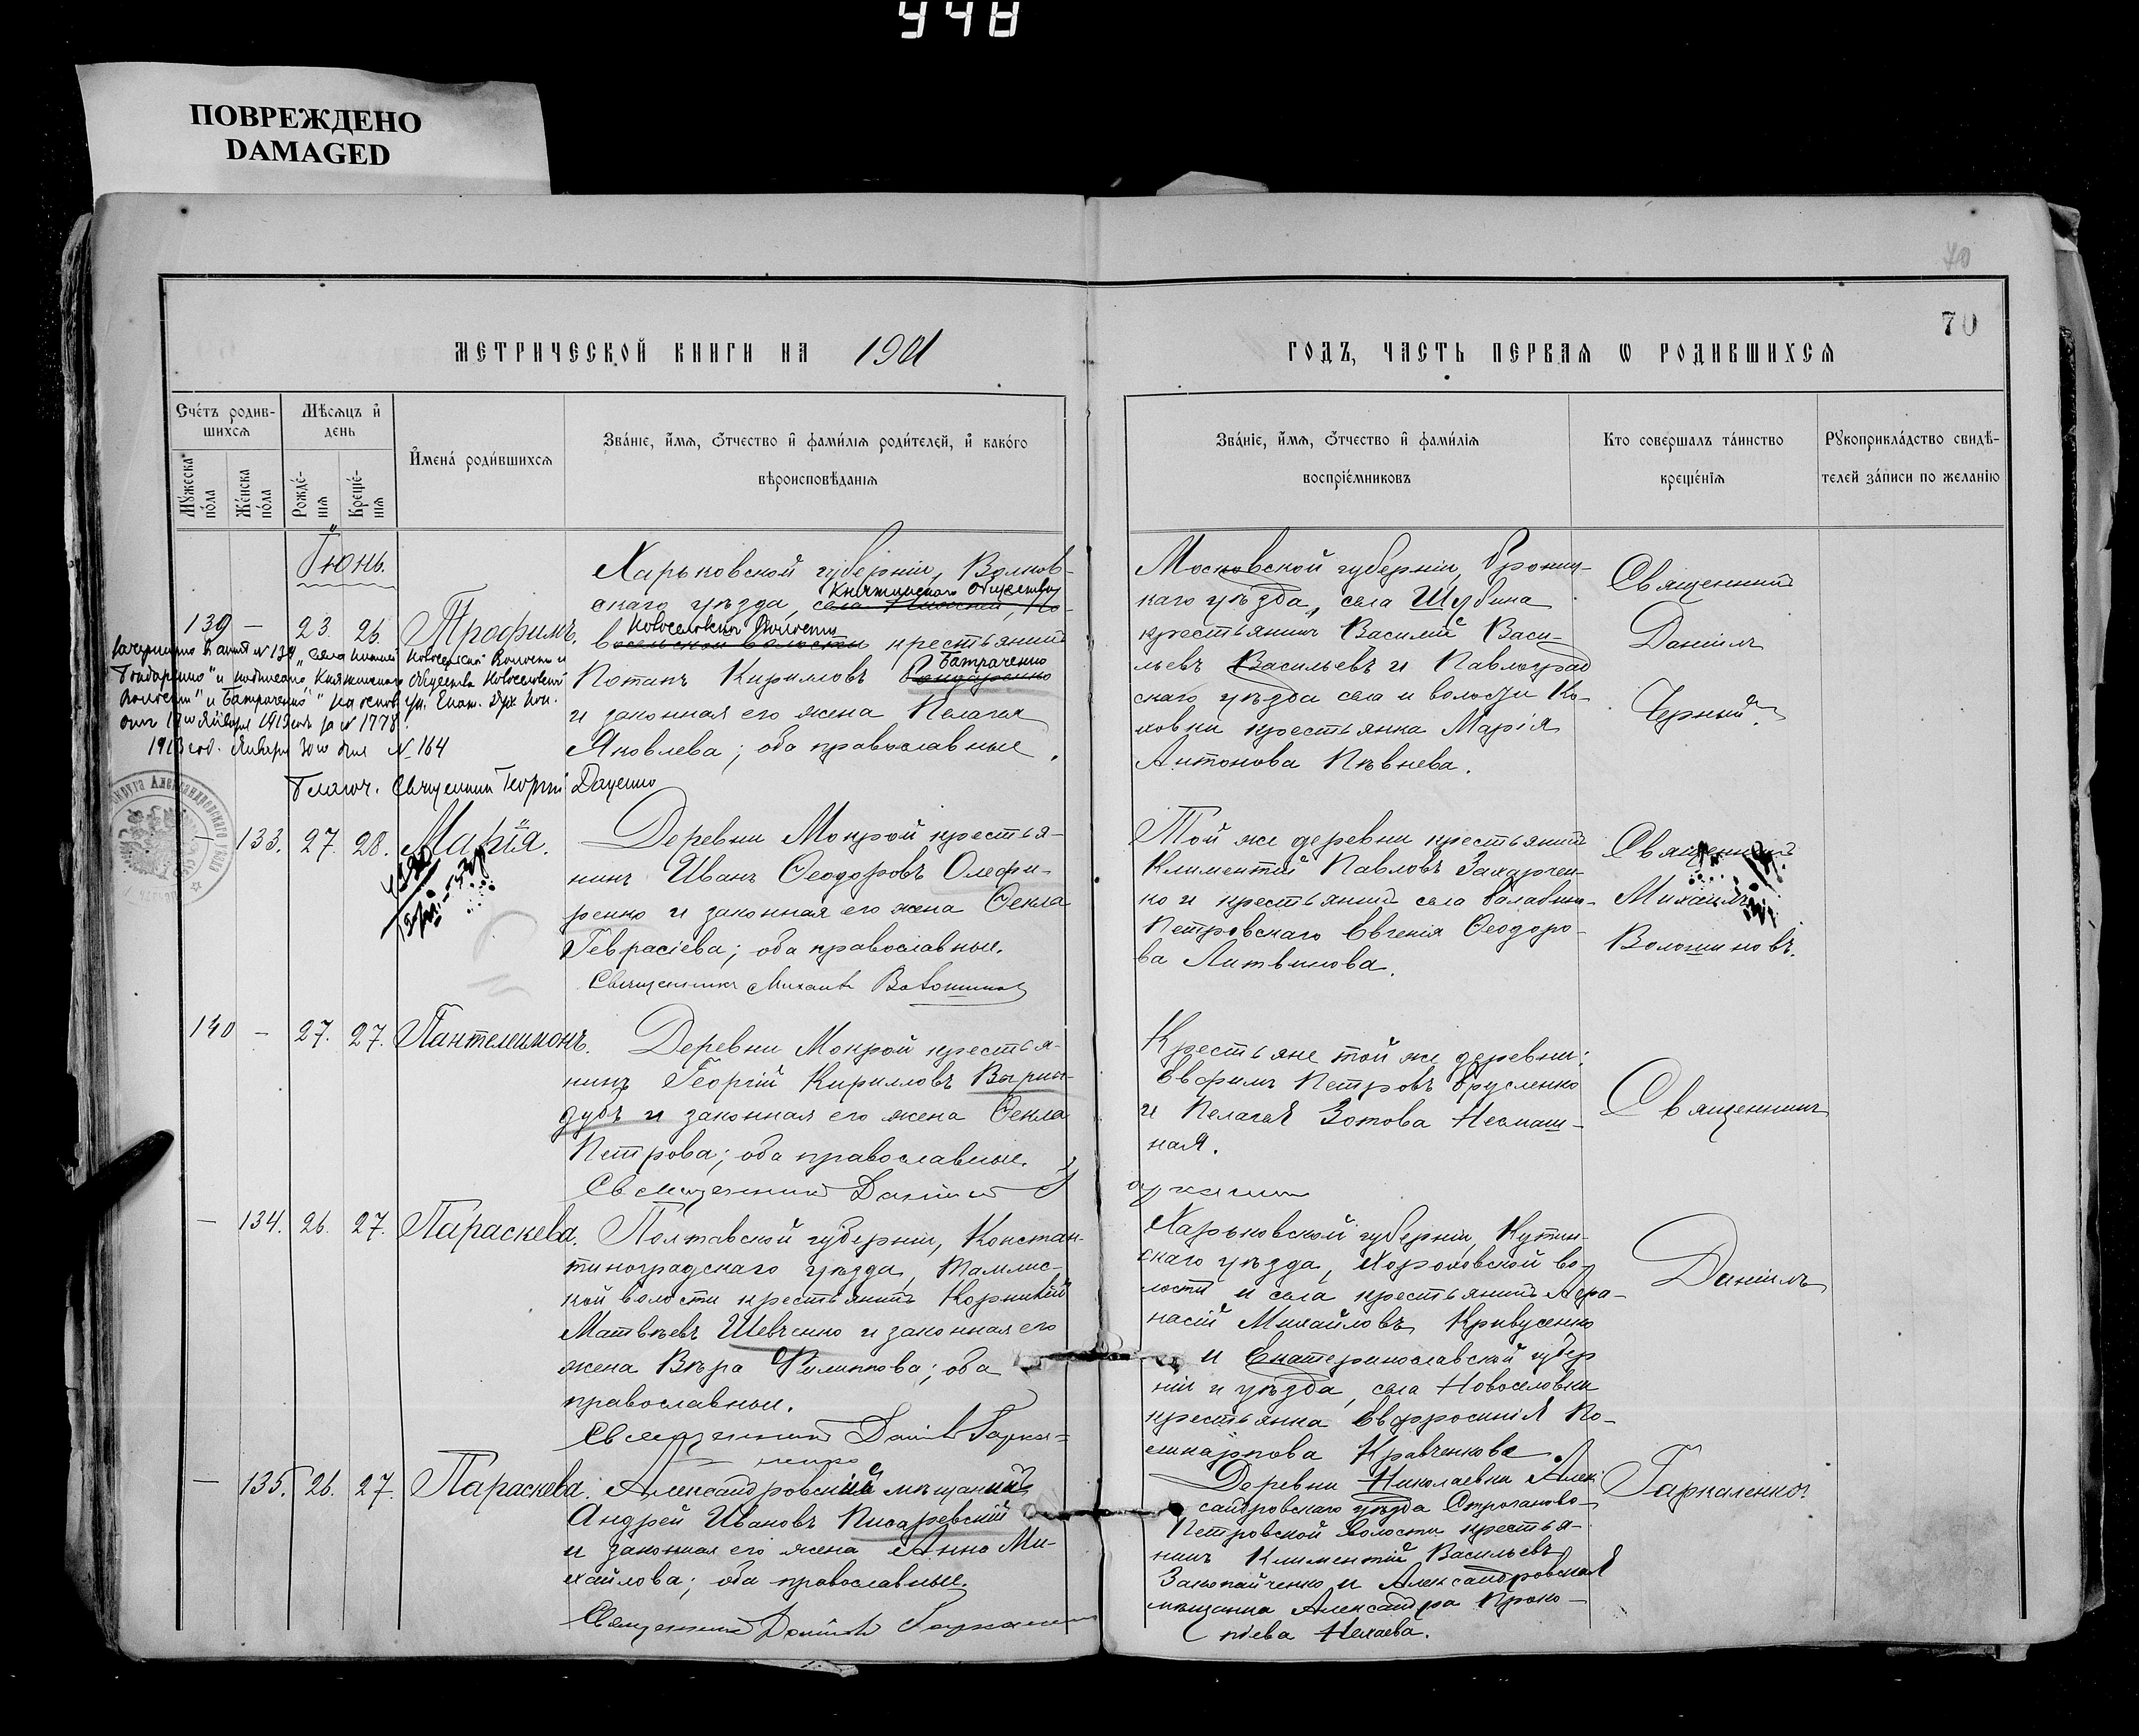 948
ПОВРЕЖДЕНО
DAMAGED
70
70
МЕТРИЧЕСКОЙ КНИГИ НА 1901
ГОДЪ, ЧАСТЬ ПЕРВАЯ Ѡ РОДИВШИХСЯ
Счетъ родив-
шихся
Мужеска пола
Женска пола
Мѣсяцъ и
день
Рожде-
нія
Креще-
нія
Имена родившихся
Званіе, имя, отчество и фамилія родителей, и какого
вѣроисповѣданія
Званіе, имя, отчество и фамилія
воспріемниковъ
Кто совершалъ таинство
крещенія
Рукоприкладство свидѣ-
телей записи по желанію
Іюнь.
139 — 23. 26. Трофимъ.
Харьковской губерніи, Волков-
скаго уѣзда,
Новоселовской Волости
крестьянинъ
Потапъ Кирилловъ Батраченко
и законная его жена Пелагея
Яковлева; оба православные.
1913 год. Января 30го дня № 164
Благоч. Священник Георгий Даценко
Московской губерніи, Бронниц-
каго уѣзда, села Шубина
крестьянинъ Василій Васи-
льевъ Васильевъ и Павлоград
скаго уѣзда села и волости Ко-
ховки крестьянка Марія
Антонова Пѣвнева.
Священникъ
Даніилъ
Черный.
— 133. 27. 28. Марія.
Деревни Мокрой крестья-
нинъ Иванъ Ѳеодоровъ Олефи-
ренко и законная его жена Ѳекла
Геврасіева; оба православные.
Священникъ Михаилъ Волошиновъ
Той же деревни крестьянинъ
Климентій Павловъ Захарчен-
ко и крестьянка села Балабино-
Петровскаго Евгенія Ѳеодоро-
ва Литвинова.
Священникъ
Михаилъ
Волошиновъ.
140 — 27. 27. Пантелеимонъ.
Деревни Мокрой крестья-
нинъ Георгій Кирилловъ Выри-
дубъ и законная его жена Ѳекла
Петрова; оба православные.
Священникъ Даніилъ
Крестьяне той же деревни:
Евфимъ Петровъ Брусленко
и Пелагея Зотова Несмаш-
ная.
Священникъ
— 134. 26. 27. Параскева.
Полтавской губерніи, Констан-
тиноградскаго уѣзда,
кой волости крестьянинъ Корнилій
Матвѣевъ Шевченко и законная его
жена Вѣра Филиппова; оба
православные.
Священникъ Даніилъ Гарка-
ленко
Харьковской губерніи, Купян-
скаго уѣзда, во-
лости и села крестьянинъ Аѳа-
насій Михайловъ Кривуценко
и Екатеринославской губер
ніи и уѣзда, села Новоселовки
крестьянка Евфросинія По-
ликарпова Кравченкова.
Даніилъ
— 135. 26. 27. Параскева.
Александровскій мѣщанинъ
Андрей Ивановъ Писаревскій
и законная его жена Анна Ми-
хайлова; оба православные.
Священникъ Даніилъ Гаркаленко
Деревни Николаевки Алек
сандровскаго уѣзда Строганово-
Петровской волости крестья-
нинъ Климентій Васильевъ
Закопайченко и Александровская
мѣщанка Александра Проко-
піева Нехаева.
Гаркаленко.